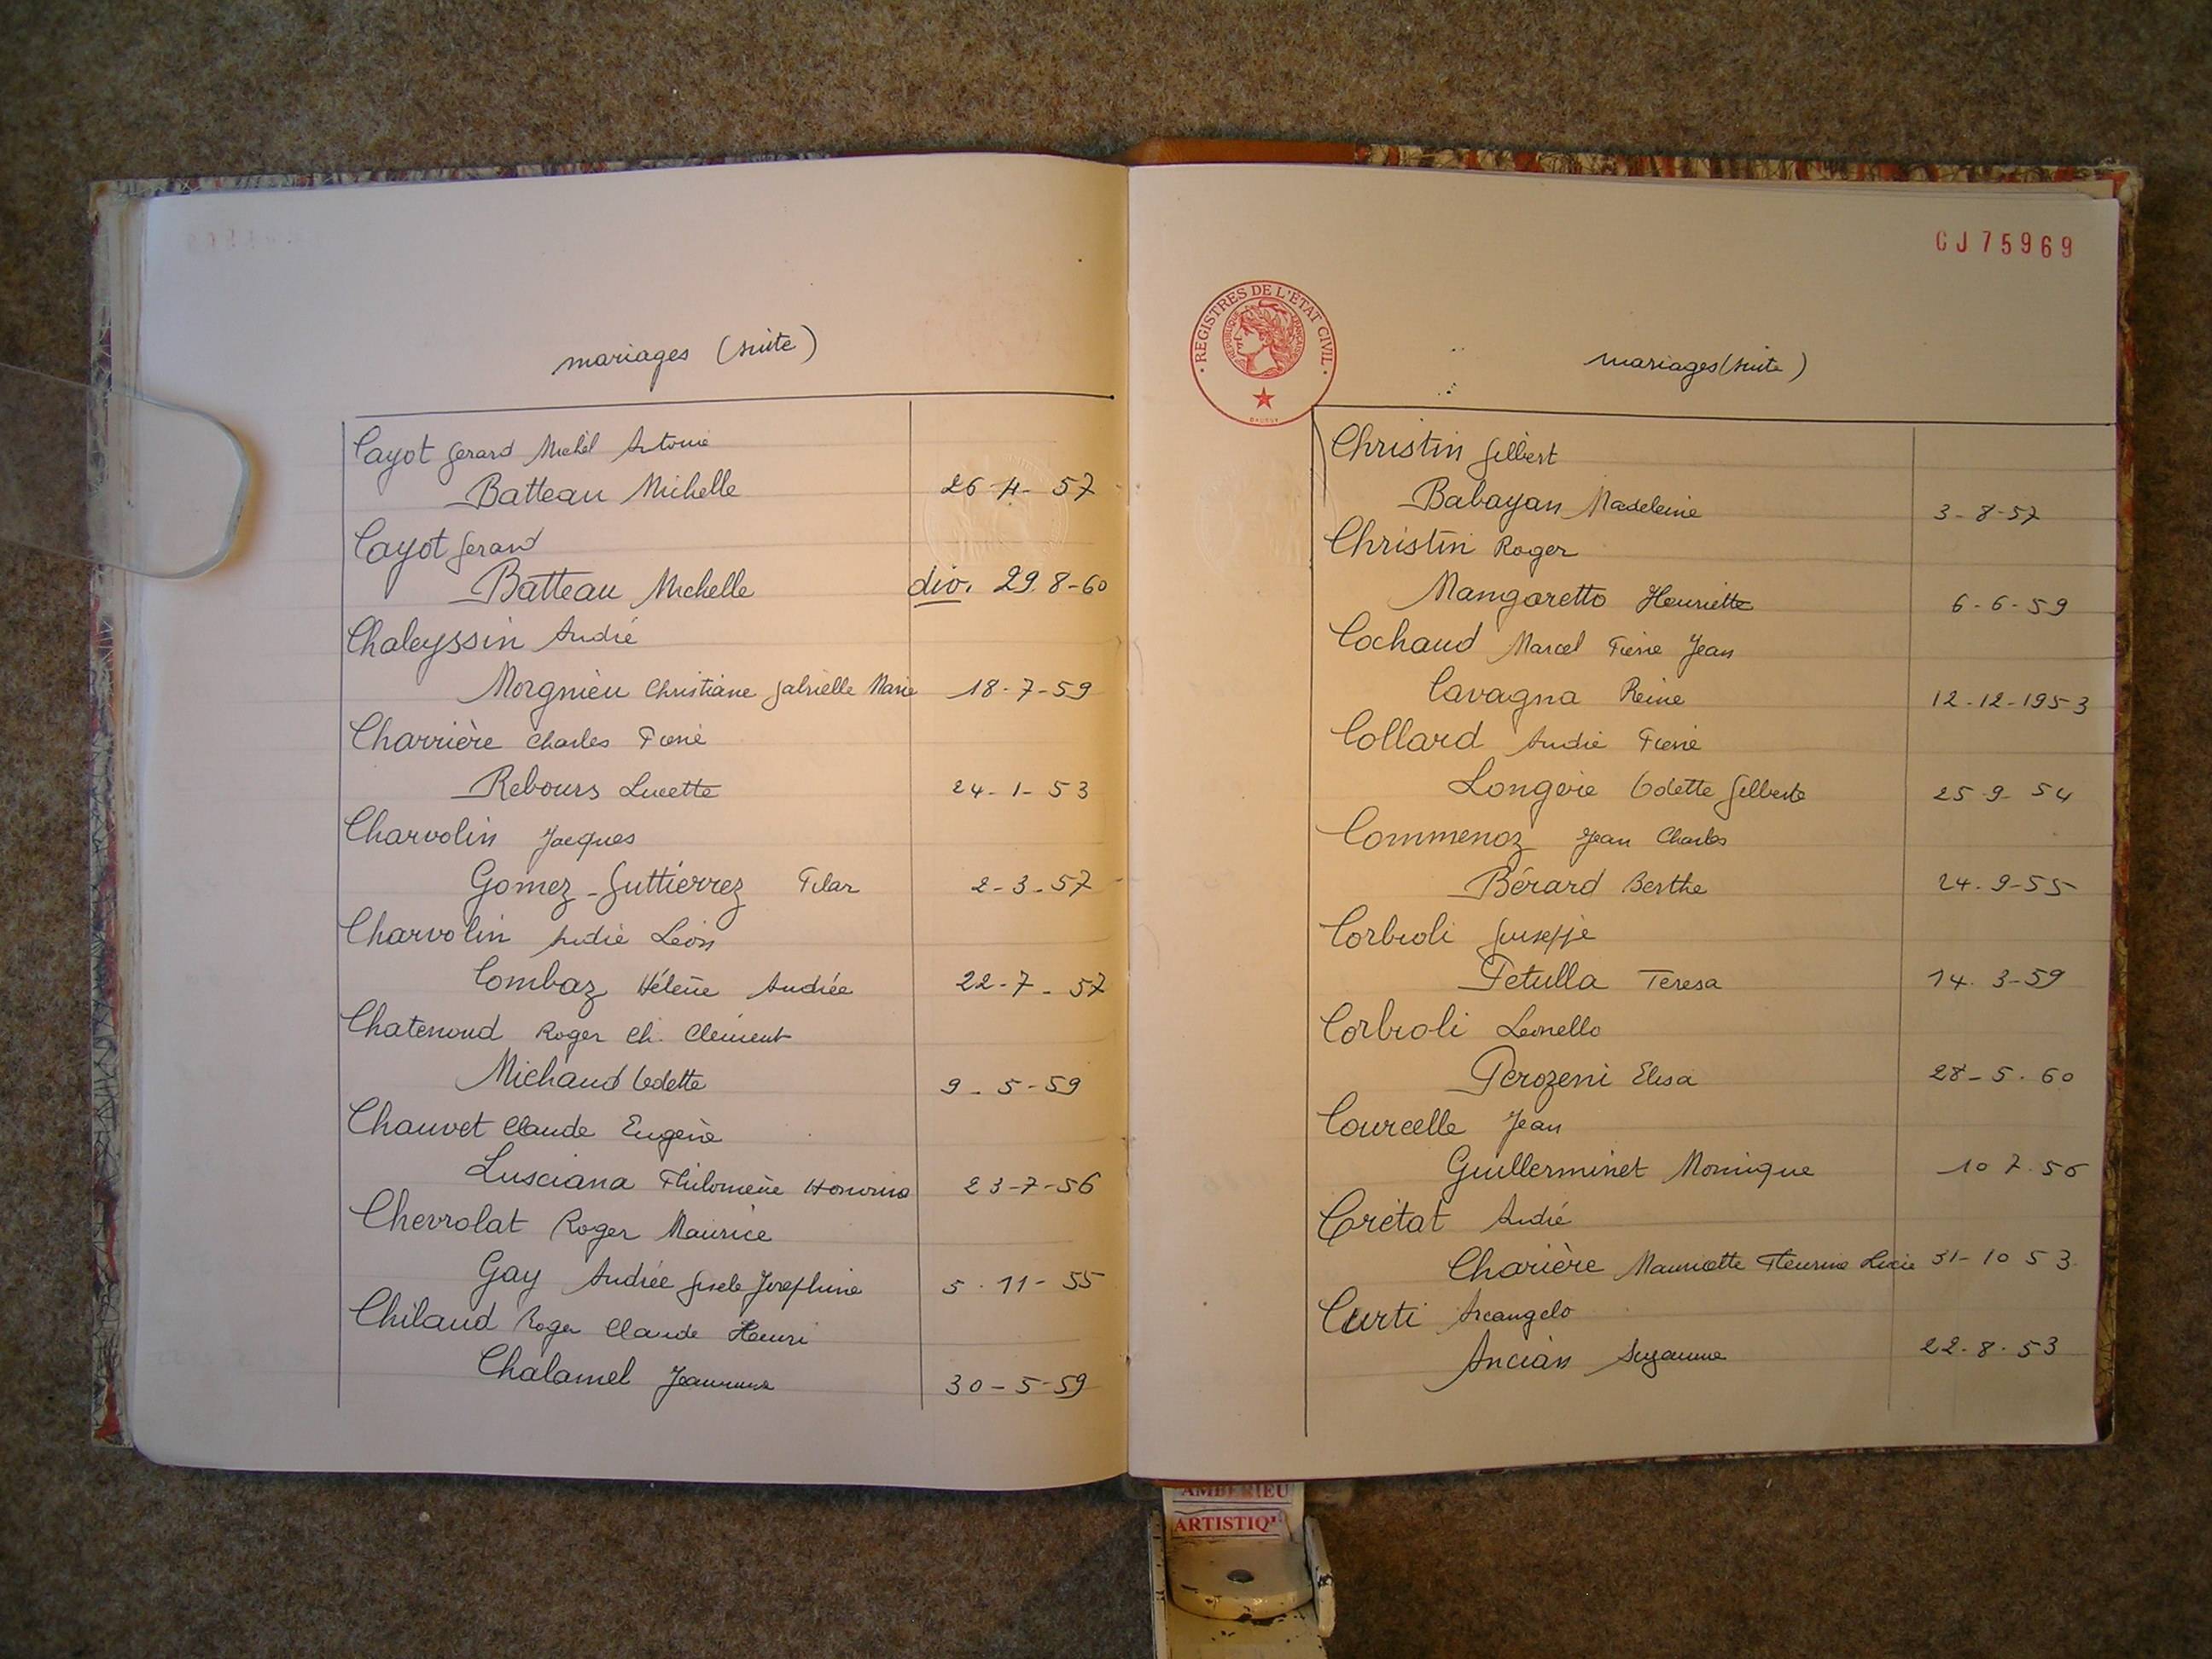 mariages (suite)
Cayot Gerard Michel Antoine
Batteau Michelle 26-4-57
Cayot Gerard
Batteau Michelle div. 29.8-60
Chaleyssin André
Morgnieu Christiane Gabrielle Marie 18-7-59
Charrière Charles Pierre
Rebours Lucette 24-1-53
Charvolin Jacques
Gomez-Guttierrez Pilar 2-3-57
Charvolin André Léon
Combaz Hélène Andrée 22-7-57
Chatenoud Roger Ch. Clément
Michaud Odette 9-5-59
Chauvet Claude Eugène
Lusciana Philomène 23-7-56
Chevrolat Roger Maurice
Gay Andrée Gisele Josephine 5-11-55
Chilaud Roger Claude Henri
Chalamel Jeannine 30-5-59
CJ75969
REGISTRES DE L'ETAT CIVIL
REPUBLIQUE FRANÇAISE
mariages (suite)
Christin Gilbert
Babayan Madeleine 3-8-57
Christin Roger
Mangaretto Henriette 6-6-59
Cochaud Marcel Pierre Jean
Cavagna Reine 12-12-1953
Collard André Pierre
Longère Odette Gilberte 25-9-54
Commenoz Jean Charles
Bérard Berthe 24.9-55
Corbioli Guiseppe
Petulla Teresa 14.3-59
Corbioli Leonello
Perozeni Elisa 28-5.60
Courcelle Jean
Guillerminet Monique 10 7.56
Crétat André
Charière Mauricette Fleurine 31-10 53
Curti Arcangelo
Ancian Suzanne 22-8-53
AMBERIEU
ARTISTIQ